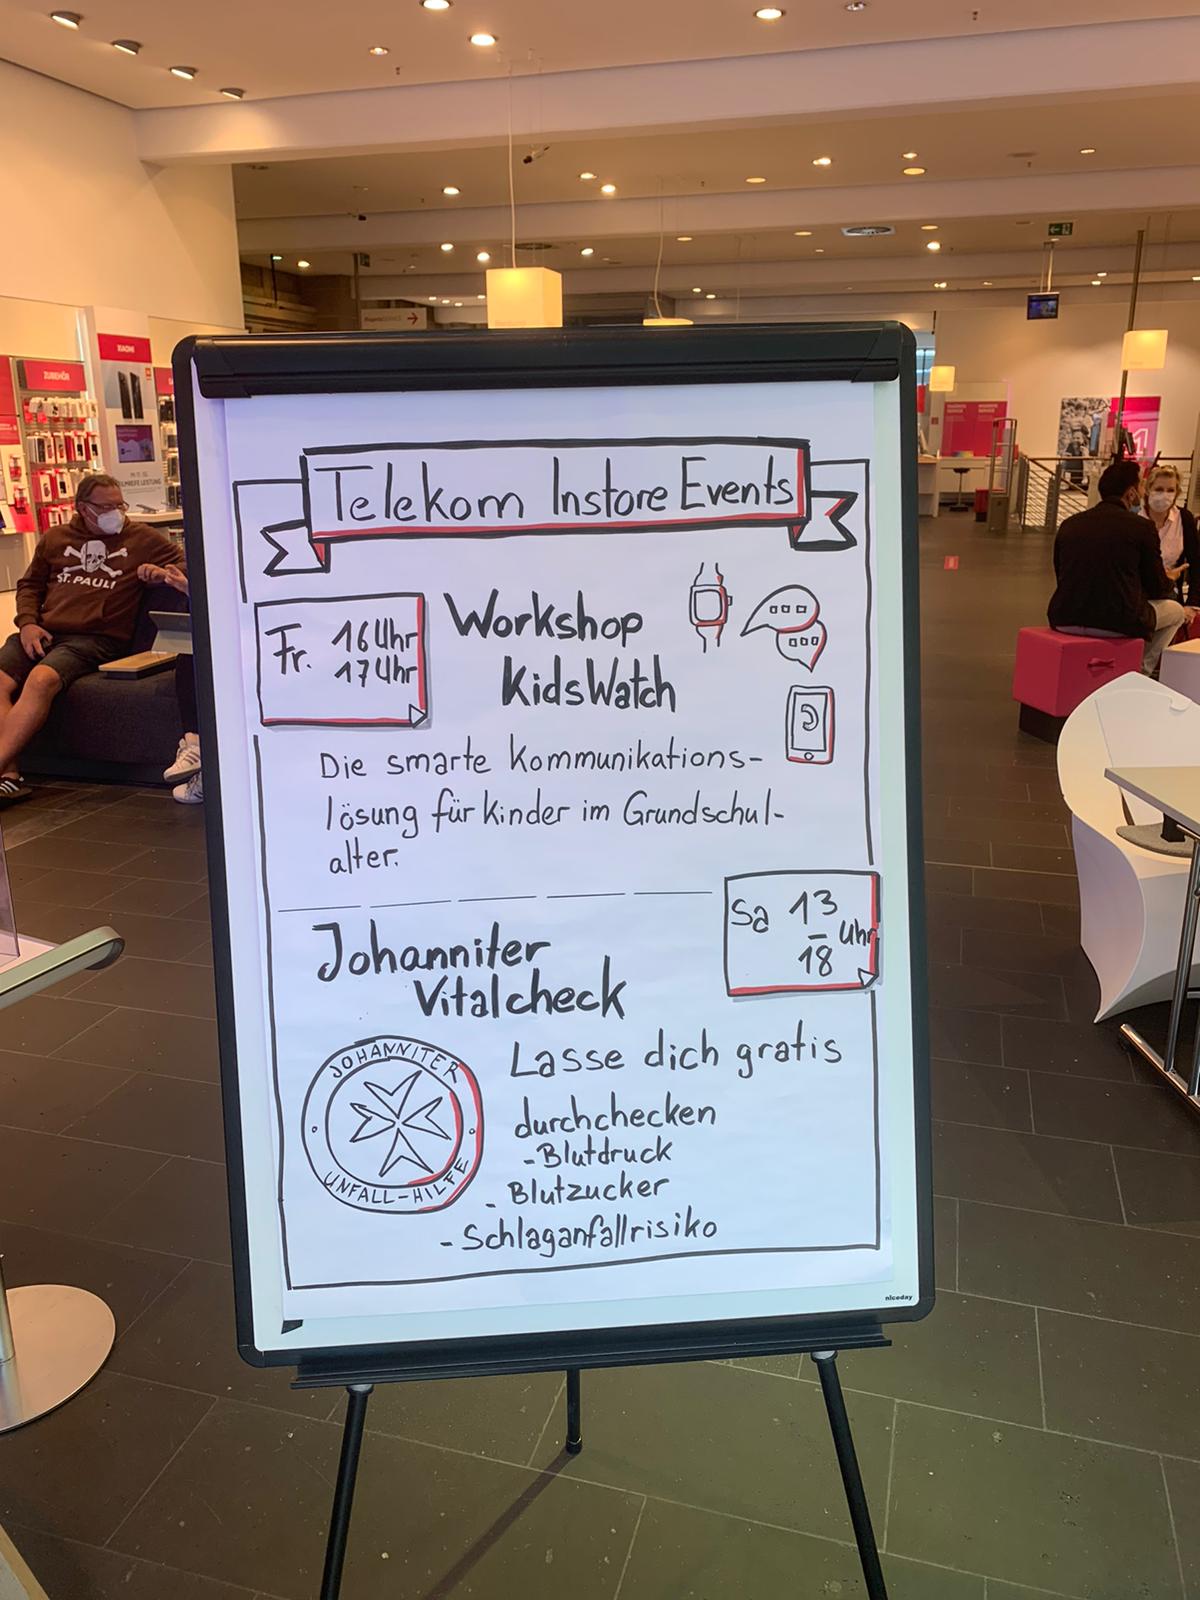 Telekom Instore Events
Fr. 16 Uhr
17 Uhr
Workshop
KidsWatch
Die smarte Kommunikations-
lösung für Kinder im Grundschul-
alter.
Sa 13
–
18
Uhr
Johanniter
Vitalcheck
Lasse dich gratis
durchchecken
- Blutdruck
- Blutzucker
- Schlaganfallrisiko
JOHANNITER
UNFALL-HILFE
niceday
XIAOMI
ZUBEHÖR
ST. PAULI